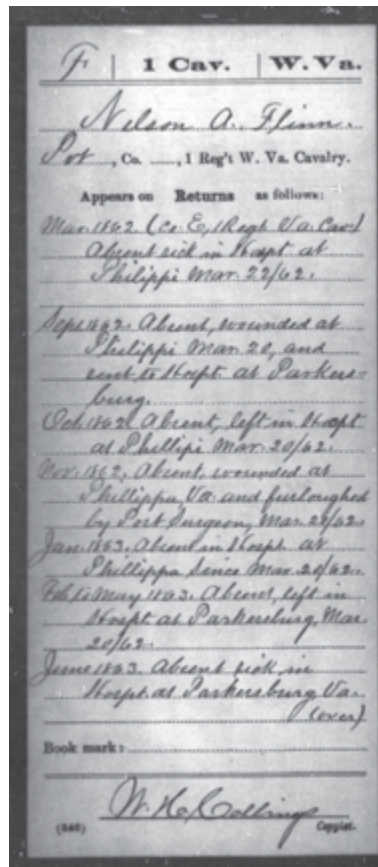 F | 1 Cav. | W. Va.
Nelson A. Flinn.
Pvt, Co. , 1 Reg't W. Va. Cavalry.
Appears on Returns as follows:
Mar. 1862. (Co. E, 1 Regt. Va. Cav.)
Absent sick in Hospt. at
Philippi Mar. 22/62.
Sept. 1862. Absent, wounded at
Philippi Mar. 20, and
sent to Hospt. at Parkers-
burg.
Oct. 1862. Absent, left in Hospt
at Phillipi Mar. 20/62.
Nov. 1862. Absent, wounded at
Phillippa, Va. and furloughed
by Post Surgeon, Mar. 22/62.
Jan. 1863. Absent in Hosp. at
Phillippa Since Mar. 20/62.
Feb. to May 1863. Absent, left in
Hospt. at Parkersburg, Mar.
20/62.
June 1863. Absent sick, in
Hospt. at Parkersburg, Va.
(over)
Book mark:
W. H. Collings
(546) Copyist.